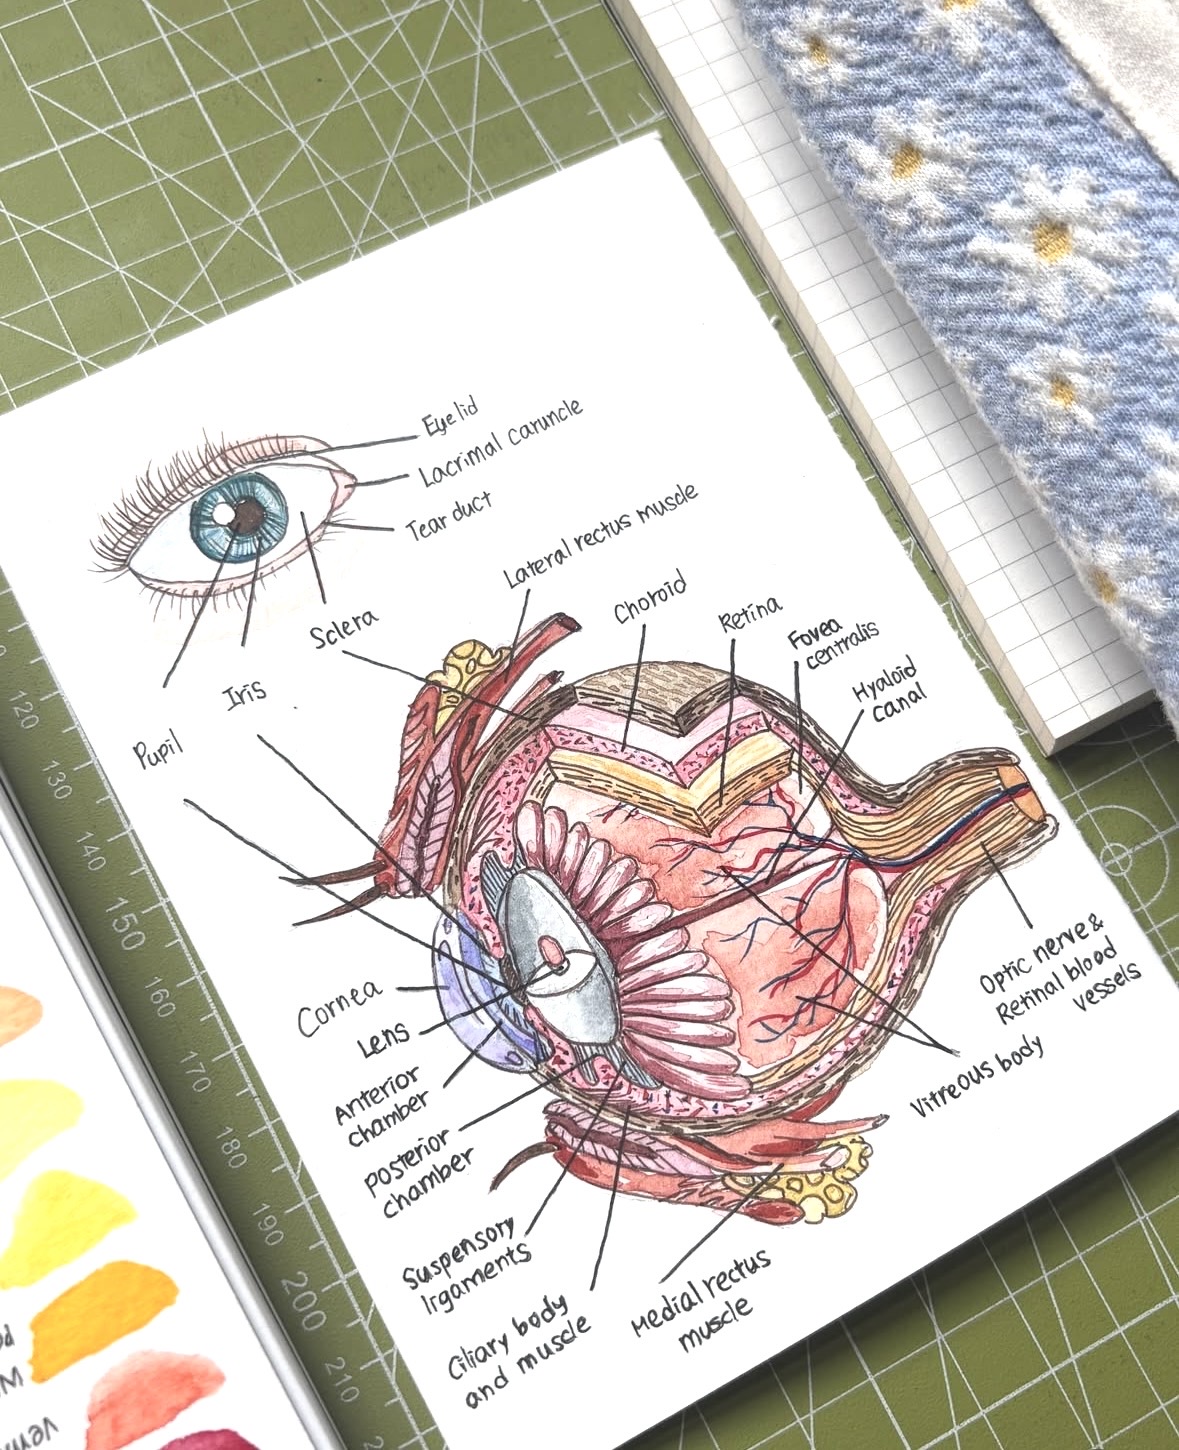 Eyelid
Lacrimal caruncle
Tear duct
Lateral rectus muscle
Sclera
Choroid
Retina
Fovea
centralis
Hyaloid
canal
Iris
Pupil
Cornea
Lens
Anterior
chamber
posterior
chamber
Suspensory
ligaments
Ciliary body
and muscle
Medial rectus
muscle
Vitreous body
Optic nerve &
Retinal blood
vessels
120
130
140
150
160
170
180
190
200
210